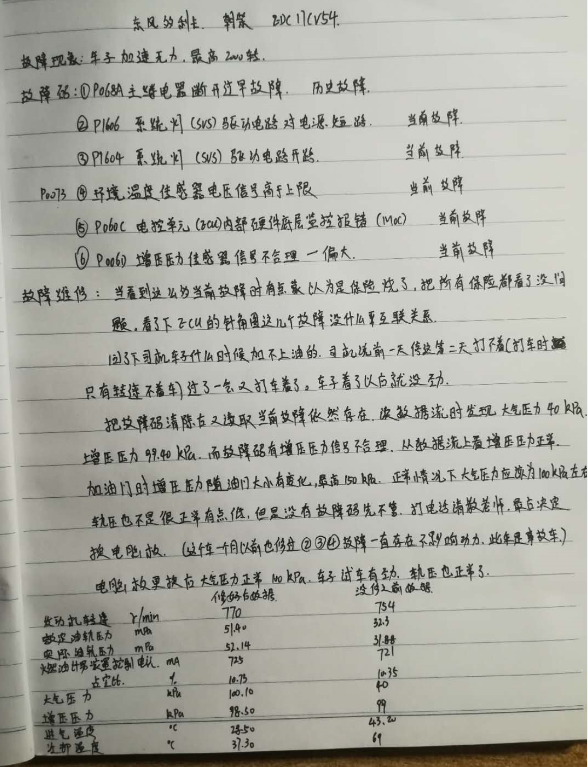 东风多利卡 朝柴 EDC17CV54.
故障现象: 车子加速无力, 最高2000转.
故障码: ① P068A 主继电器断开过早故障. 历史故障.
② P1606 系统灯 (SVS) 驱动电路对电源短路. 当前故障.
③ P1604 系统灯 (SVS) 驱动电路开路. 当前故障.
P0073 ④ 环境温度传感器电压信号高于上限 当前故障
⑤ P060C 电控单元 (ECU) 内部硬件底层监控报错 (MoC) 当前故障
⑥ P006D 增压压力传感器信号不合理一偏大. 当前故障
故障维修: 当看到这么多当前故障时有点蒙以为是保险烧了, 把所有保险都看了没问
题, 看了下ECU的针角图这几个故障没什么互联关系.
问了下司机车子什么时候加不上油的. 司机说前一天停这第二天打不着(打车时
只有转速不着车) 过了一会又打车着了. 车子着了以后就没劲.
把故障码清除后又读取当前故障依然存在. 读数据流时发现 大气压力40 kPa.
增压压力99.40 kPa. 而故障码有增压压力信号不合理. 从数据流上看增压压力正常.
加油门时增压压力随油门大小有变化, 最高150 kPa. 正常情况下大气压力应该为100kPa左右
轨压也不是很正常有点低, 但是没有故障码先不管. 打电话请教老师, 最后决定
换电脑板. (这个车一个月以前也修过②③④故障一直存在不影响动力. 此车是事故车.)
电脑板更换后 大气压力正常 100 kPa. 车子试车有劲. 轨压也正常了.
修好后数据 没修之前数据
发动机转速 r/min 770 754
设定油轨压力 mPa 51.40 32.3
实际油轨压力 mPa 52.14 31.88
燃油计量装置控制电流. mA 725 721
占空比. % 10.73 10.35
大气压力 kPa 100.10 40
增压压力 kPa 98.50 99
进气温度 ℃ 28.50 43.20
冷却温度 ℃ 37.30 69